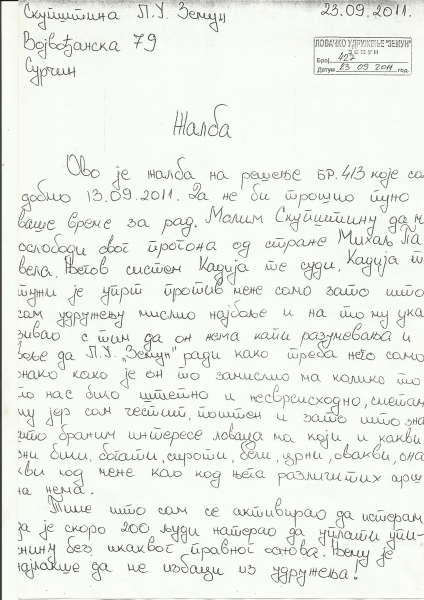 Скупштина Л.У. Земун 23.09.2011.
Војвођанска 79
Сурчин
ЛОВАЧКО УДРУЖЕЊЕ "ЗЕМУН"
ЗЕМУН
Број 427
Датум 23 09 2011 год.
Жалба
Ово је жалба на решење БР. 413 које са
добио 13.09.2011. Да не би трошио пуно
ваше време за рад. Молим Скупштину да м
ослободи овог прогона од стране Михаљ Па
вела. Његов систем Кадија те суди, Кадија т
тужи је упрт против мене само зато што
сам удружењу мислио најбоље и на то му ука
зивао с тим да он нема капи разумевања и
воље да Л.У. „Земун" ради како треба него само
онако како је он то замислио ма колико то
по нас било штетно и несврсисходно, смета
му јер сам честит, поштен и зато што зна
што браним интересе ловаца ма који и какви
они били, богати, сироти, бели, црни, овакви, она
кви код мене као код њега различитих арш
на нема.
Тиме што сам се активирао да истерам
да је скоро 200 људи натерао да уплати упи-
снину без икаквог правног основа. Њему је
најлакше да ме избаци из удружења!